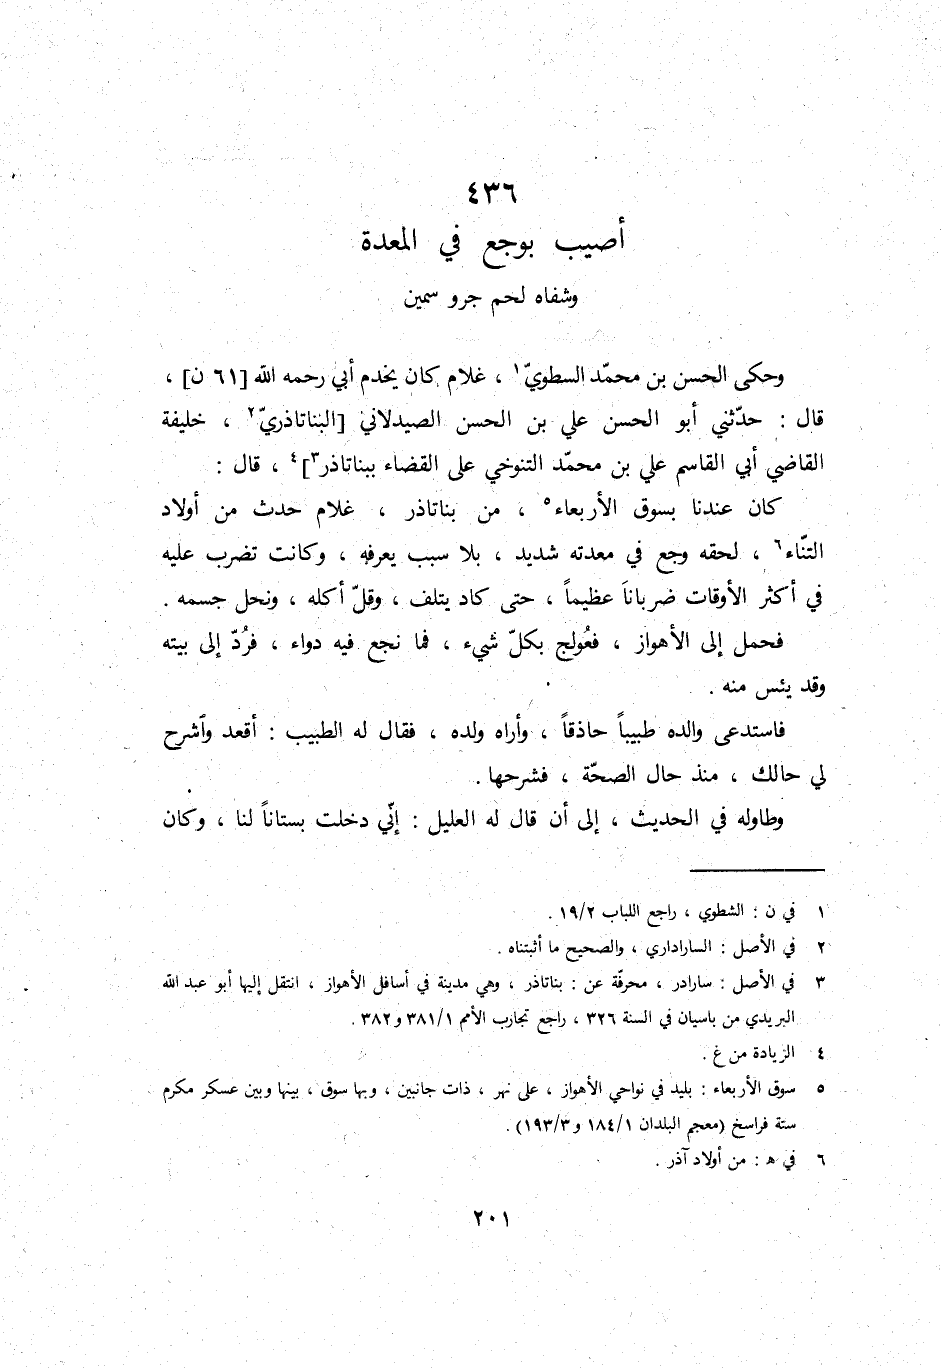 ٤٣٦
أصيب بوجع في المعدة
وشفاه لحم جرو سمين
وحكى الحسن بن محمّد السطويّ١ ، غلام كان يخدم أبي رحمه الله [٦١ ن] ،
قال : حدّثني أبو الحسن علي بن الحسن الصيدلاني [البناتاذريّ٢ ، خليفة
القاضي أبي القاسم علي بن محمّد التنوخي على القضاء ببناتاذر٣]٤ ، قال :
كان عندنا بسوق الأربعاء٥ ، من بناتاذر ، غلام حدث من أولاد
التنّاء٦ ، لحقه وجع في معدته شديد ، بلا سبب يعرفه ، وكانت تضرب عليه
في أكثر الأوقات ضرباناً عظيماً ، حتى كاد يتلف ، وقلّ أكله ، ونحل جسمه .
فحمل إلى الأهواز ، فعُولج بكلّ شيء ، فما نجع فيه دواء ، فرُدّ إلى بيته
وقد يئس منه .
فاستدعى والده طبيباً حاذقاً ، وأراه ولده ، فقال له الطبيب : أقعد وٱشرح
لي حالك ، منذ حال الصحّة ، فشرحها .
وطاوله في الحديث ، إلى أن قال له العليل : إنّي دخلت بستاناً لنا ، وكان
١ في ن : الشطوي ، راجع اللباب ١٩/٢ .
٢ في الأصل : الساراداري ، والصحيح ما أثبتناه .
٣ في الأصل : سارادر ، محرفّة عن : بناتاذر ، وهي مدينة في أسافل الأهواز ، انتقل إليها أبو عبد الله
البريدي من باسيان في السنة ٣٢٦ ، راجع تجارب الأمم ٣٨١/١ و ٣٨٢ .
٤ الزيادة من غ .
٥ سوق الأربعاء : بليد في نواحي الأهواز ، على نهر ، ذات جانبين ، وبها سوق ، بينها وبين عسكر مكرم
ستة فراسخ (معجم البلدان ١٨٤/١ و ١٩٣/٣) .
٦ في ه : من أولاد آذر .
٢٠١